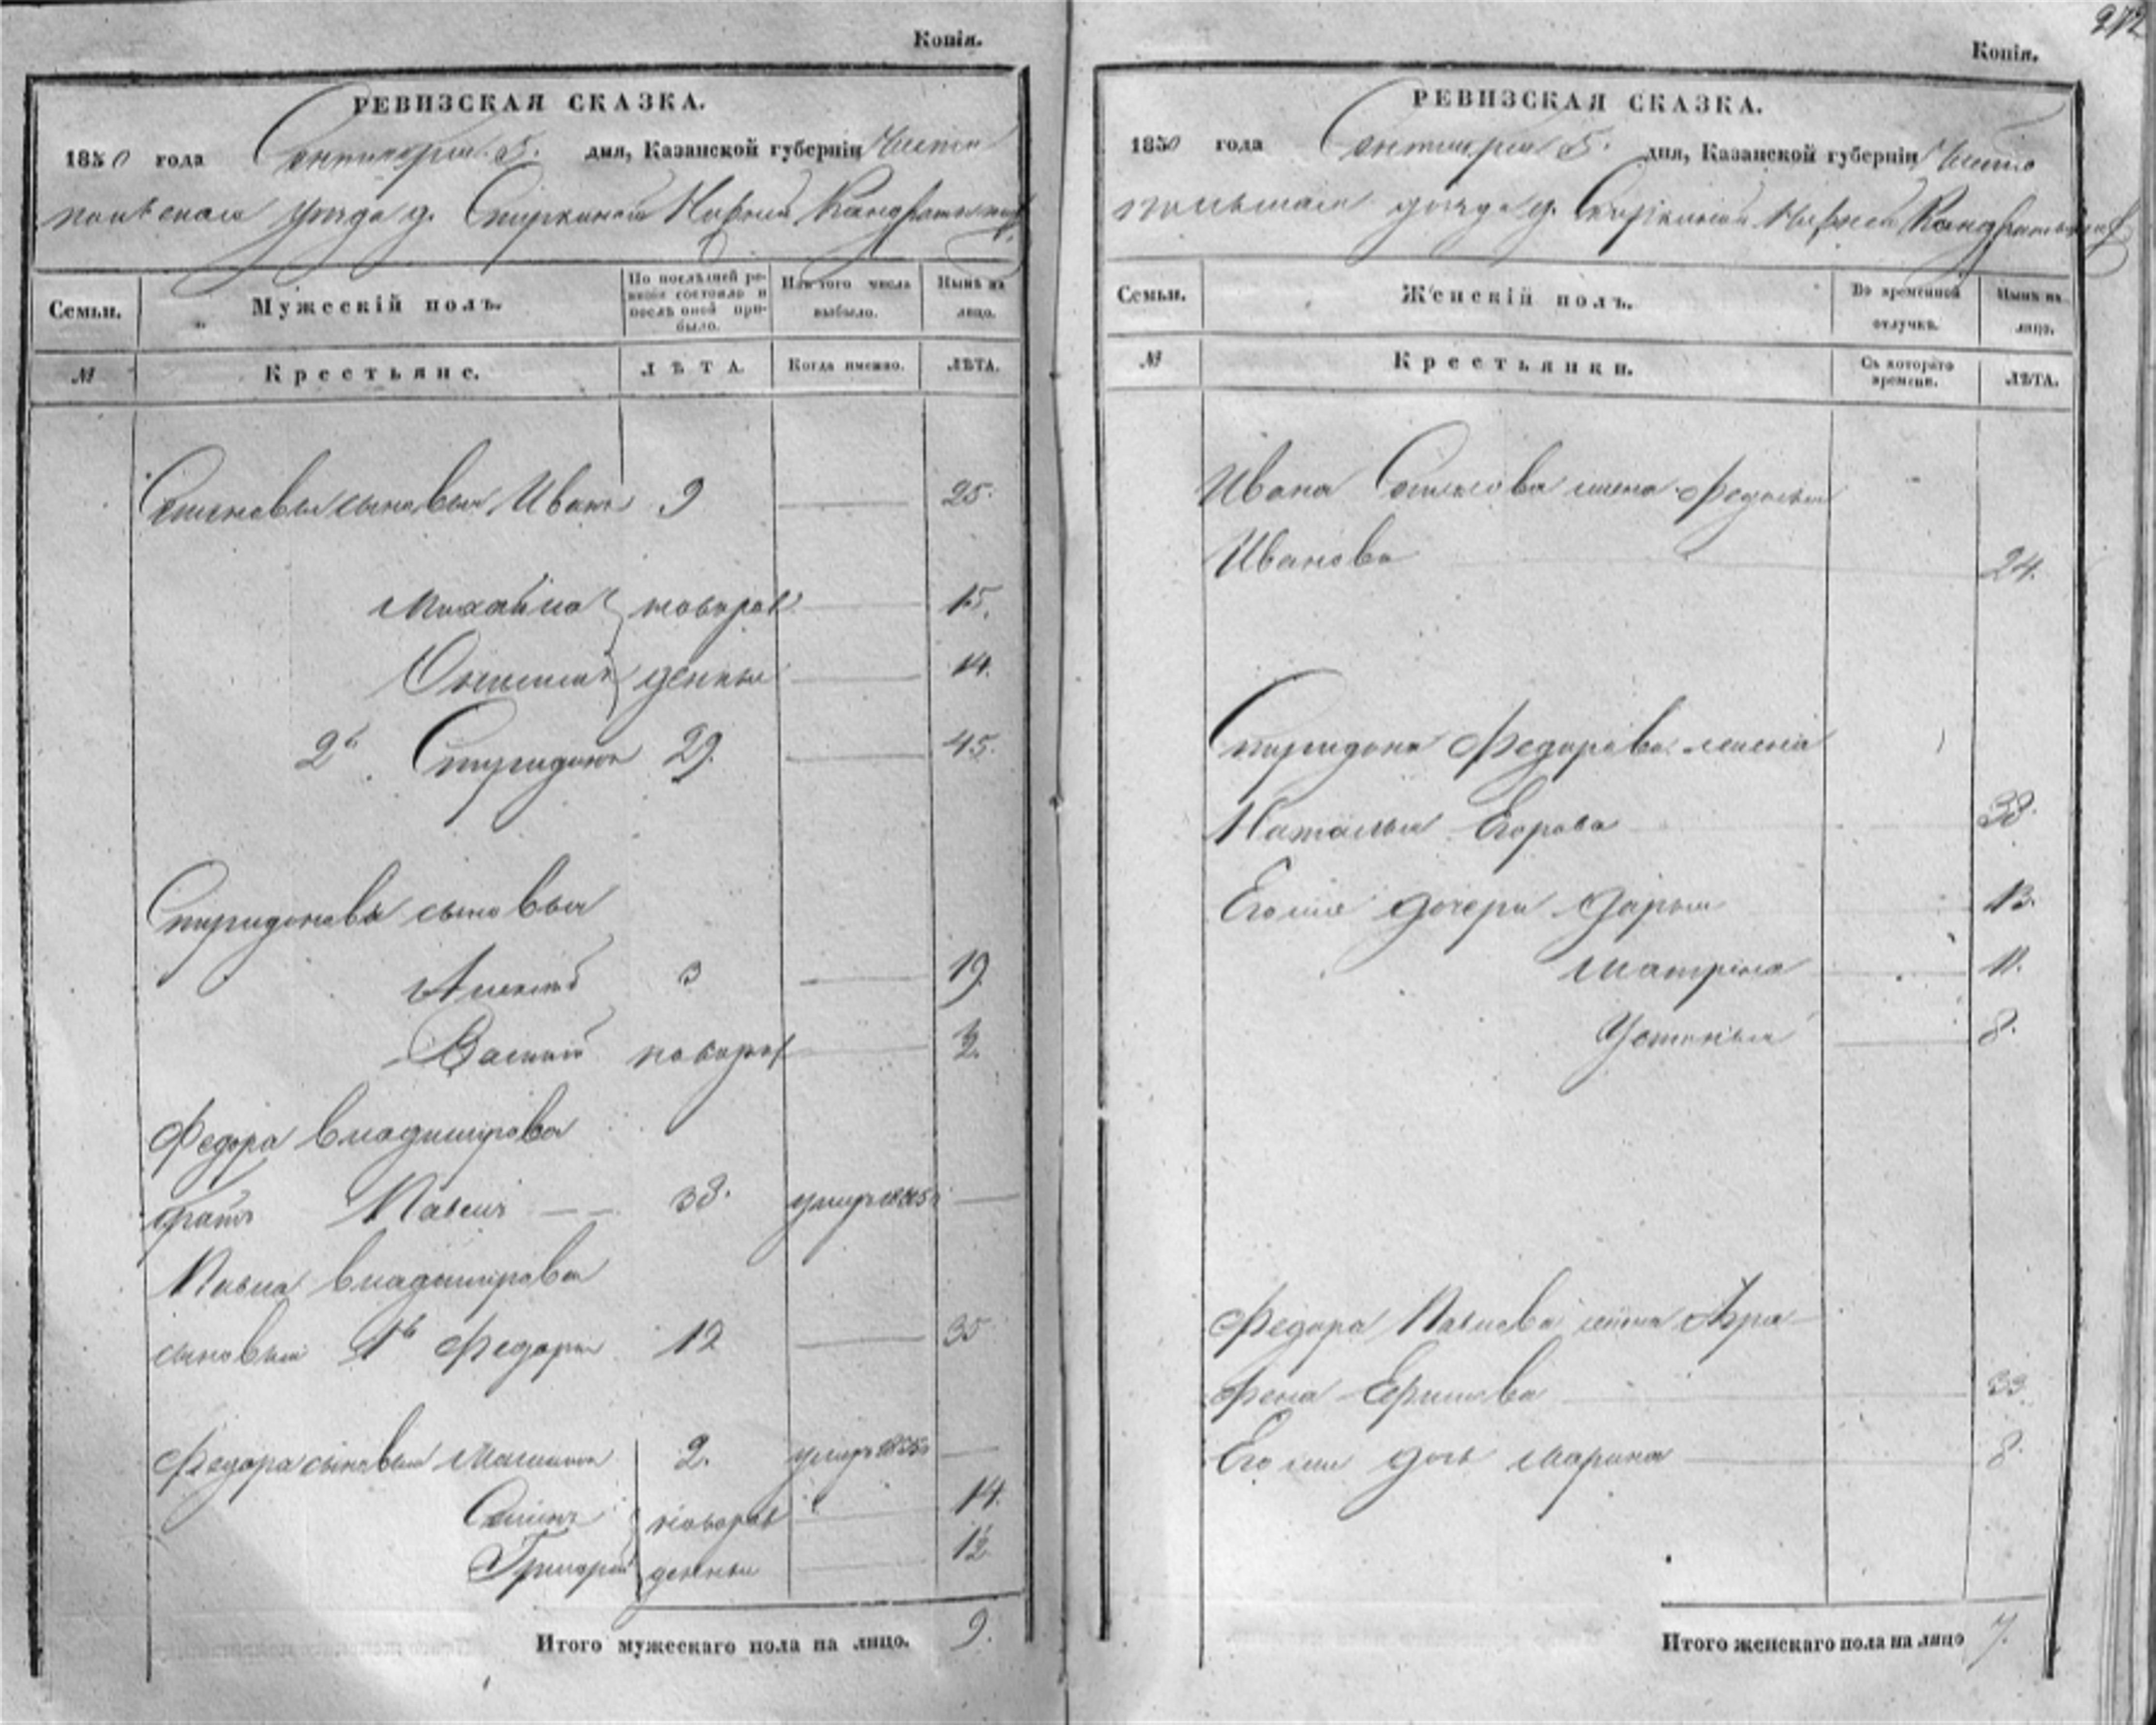 Копія.
РЕВИЗСКАЯ СКАЗКА.
1850 года Сентября 5. дня, Казанской губерніи Чисто
польскаго уѣзда д.
Семьи. Мужескій полъ. По послѣдней ревизіи состояло и послѣ оной прибыло. Изъ того числа выбыло. Нынѣ на лицо.
№ Крестьяне. ЛѢТА. Когда именно. ЛѢТА.
Семеновы сыновья Иванъ 9 25.
Михайла новорож 15.
денныя 14.
2й Спиридонъ 29. 45.
Спиридоновы сыновья
Алексѣй 3 19.
Василій новорож
Федора Владимірова
братъ Павелъ 38. умеръ
Павла Владимірова
сыновья 1й Федоръ 19 35
Федора сыновья 2. умеръ
Семенъ новорож 14.
Григорій денныя 12
Итого мужескаго пола на лицо. 9.
272
Копія.
РЕВИЗСКАЯ СКАЗКА.
1850 года Сентября 5. дня, Казанской губерніи Чисто
польскаго уѣзда д.
Семьи. Женскій полъ. Во временной отлучкѣ. Нынѣ на лицо.
№ Крестьянки. Съ котораго времени. ЛѢТА.
Ивана Семенова жена Федосья
Иванова 24.
Спиридона Федорова жена
Наталья Егорова 38.
Егоже дочери Дарья 13.
Матрена 11.
Устинья 8.
Федора Павлова жена Агра
фена Ефимова 33
Егоже дочь Марина 8.
Итого женскаго пола на лицо 7.